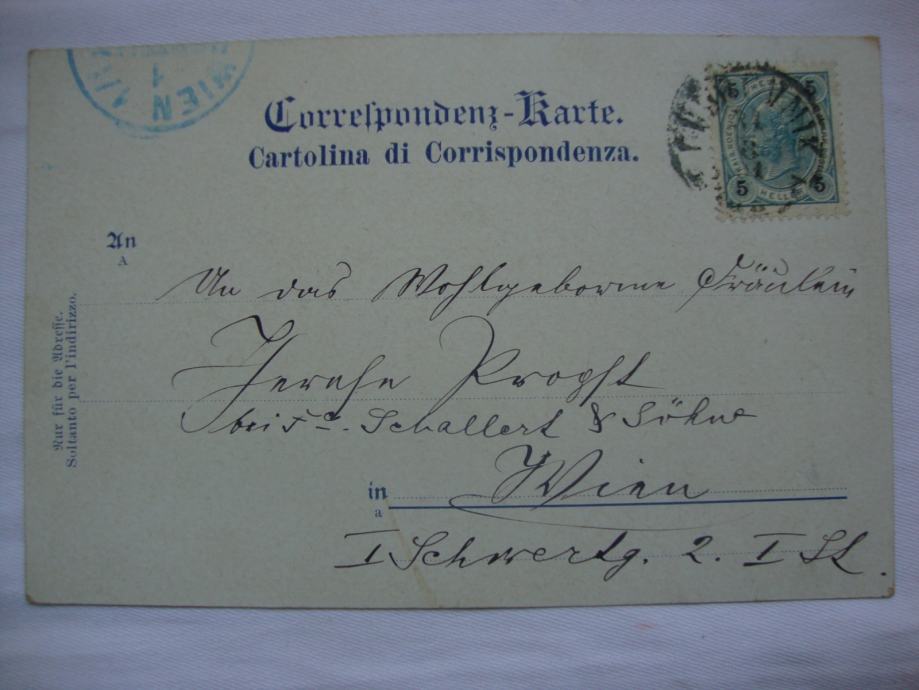 WIEN 1/1
1
Correspondenz-Karte.
Cartolina di Corrispondenza.
5 5
5 HELLER 5
An
A
An das Wohlgeborene Fräulein
Propst
bei Fa. Schallert & Söhne
in Wien
a
I Schwertg. 2. I St.
Nur für die Adresse.
Soltanto per l'indirizzo.